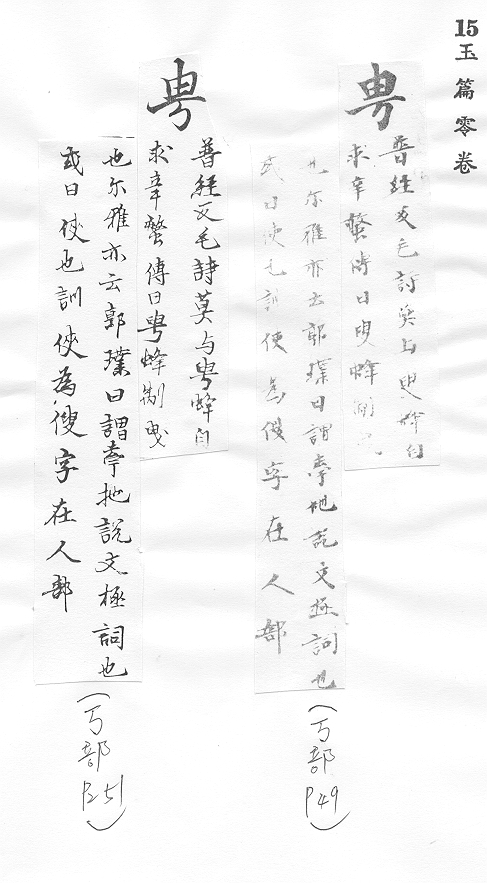 15玉篇零卷
甹
普經反毛詩莫与甹蜂自
求辛螫傳曰甹蜂
也尔雅亦云郭璞曰謂牽扡說文極詞也
或曰使也訓使為俜字在人部
(丂部P49)
甹
普經反毛詩莫与甹蜂自
求辛螫傳曰甹蜂制曳
也尔雅亦云郭璞曰謂牽扡說文極詞也
或曰俠也訓俠為俜字在人部
(丂部P251)